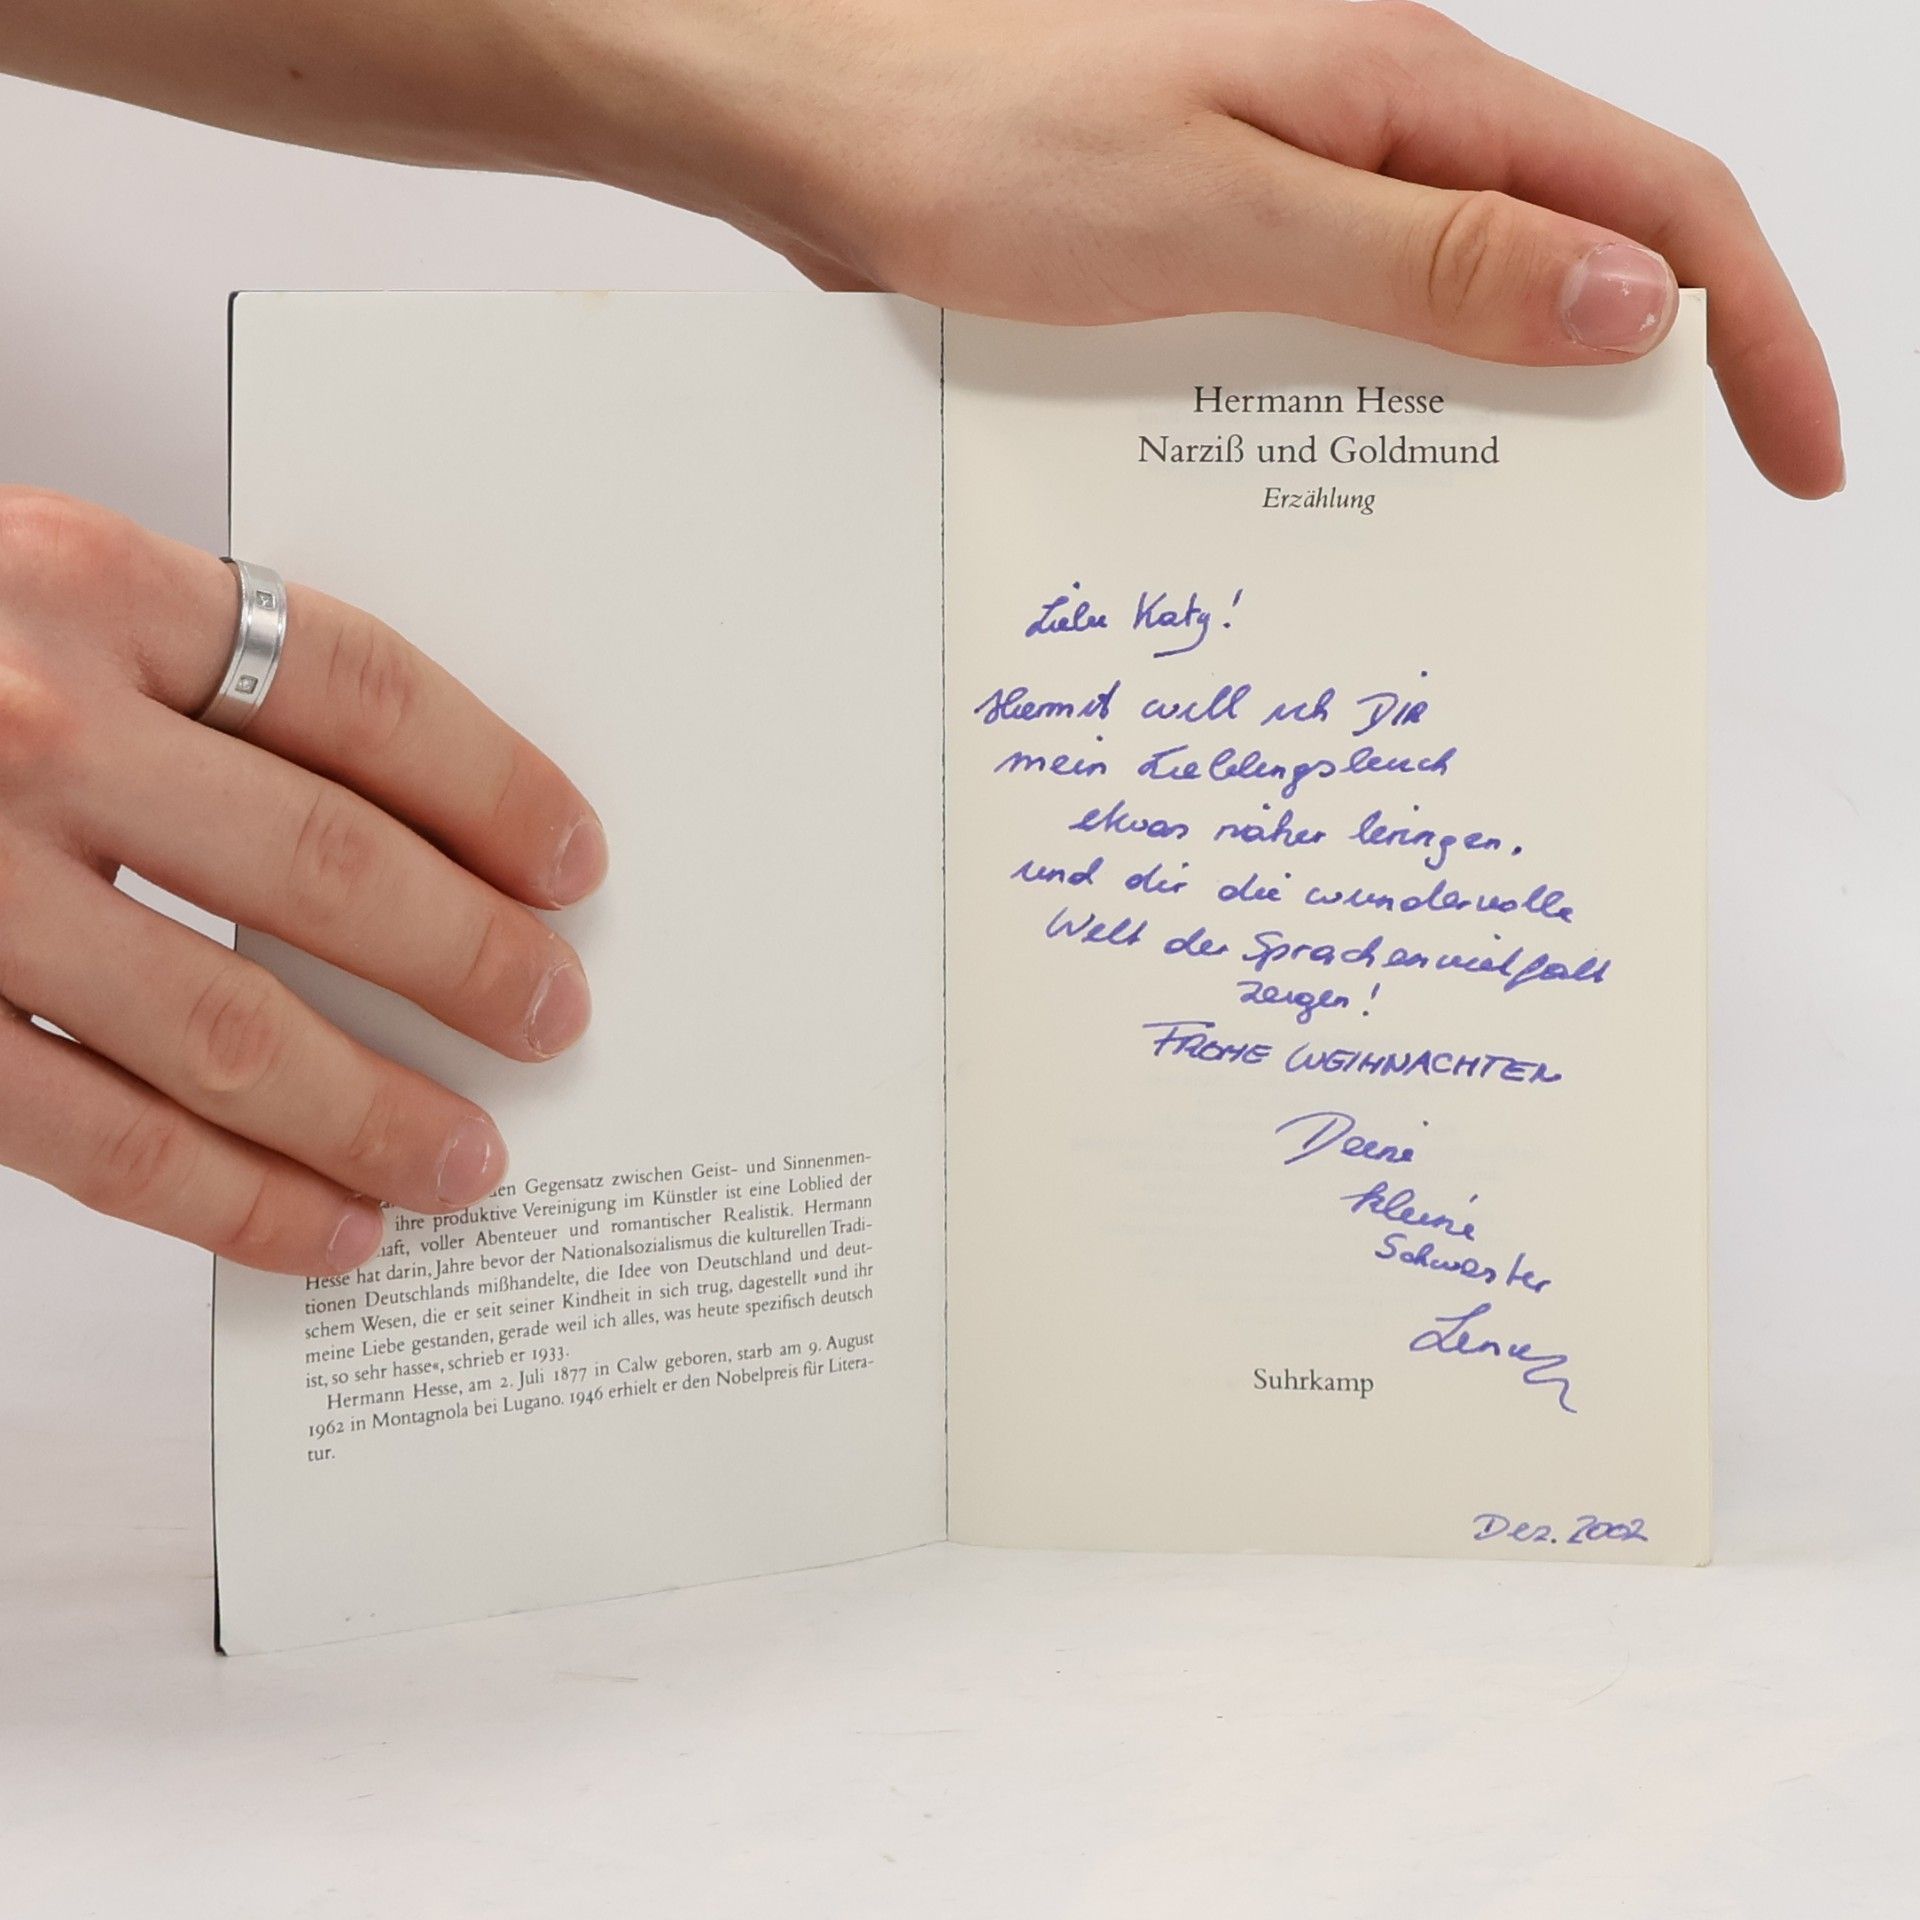 den Gegensatz zwischen Geist- und Sinnenmen-
ihre produktive Vereinigung im Künstler ist eine Loblied der
haft, voller Abenteuer und romantischer Realistik. Hermann
Hesse hat darin, Jahre bevor der Nationalsozialismus die kulturellen Tradi-
tionen Deutschlands mißhandelte, die Idee von Deutschland und deut-
schem Wesen, die er seit seiner Kindheit in sich trug, dagestellt »und ihr
meine Liebe gestanden, gerade weil ich alles, was heute spezifisch deutsch
ist, so sehr hasse«, schrieb er 1933.
Hermann Hesse, am 2. Juli 1877 in Calw geboren, starb am 9. August
1962 in Montagnola bei Lugano. 1946 erhielt er den Nobelpreis für Litera-
tur.
Hermann Hesse
Narziß und Goldmund
Erzählung
Liebe Katy!
Hiermit will ich DIR
mein Lieblingsbuch
etwas näher bringen,
und dir die wundervolle
Welt der Sprachenvielfalt
zeigen!
FROHE WEIHNACHTEN
Deine
kleine
Schwester
Lena
Suhrkamp
Dez. 2002